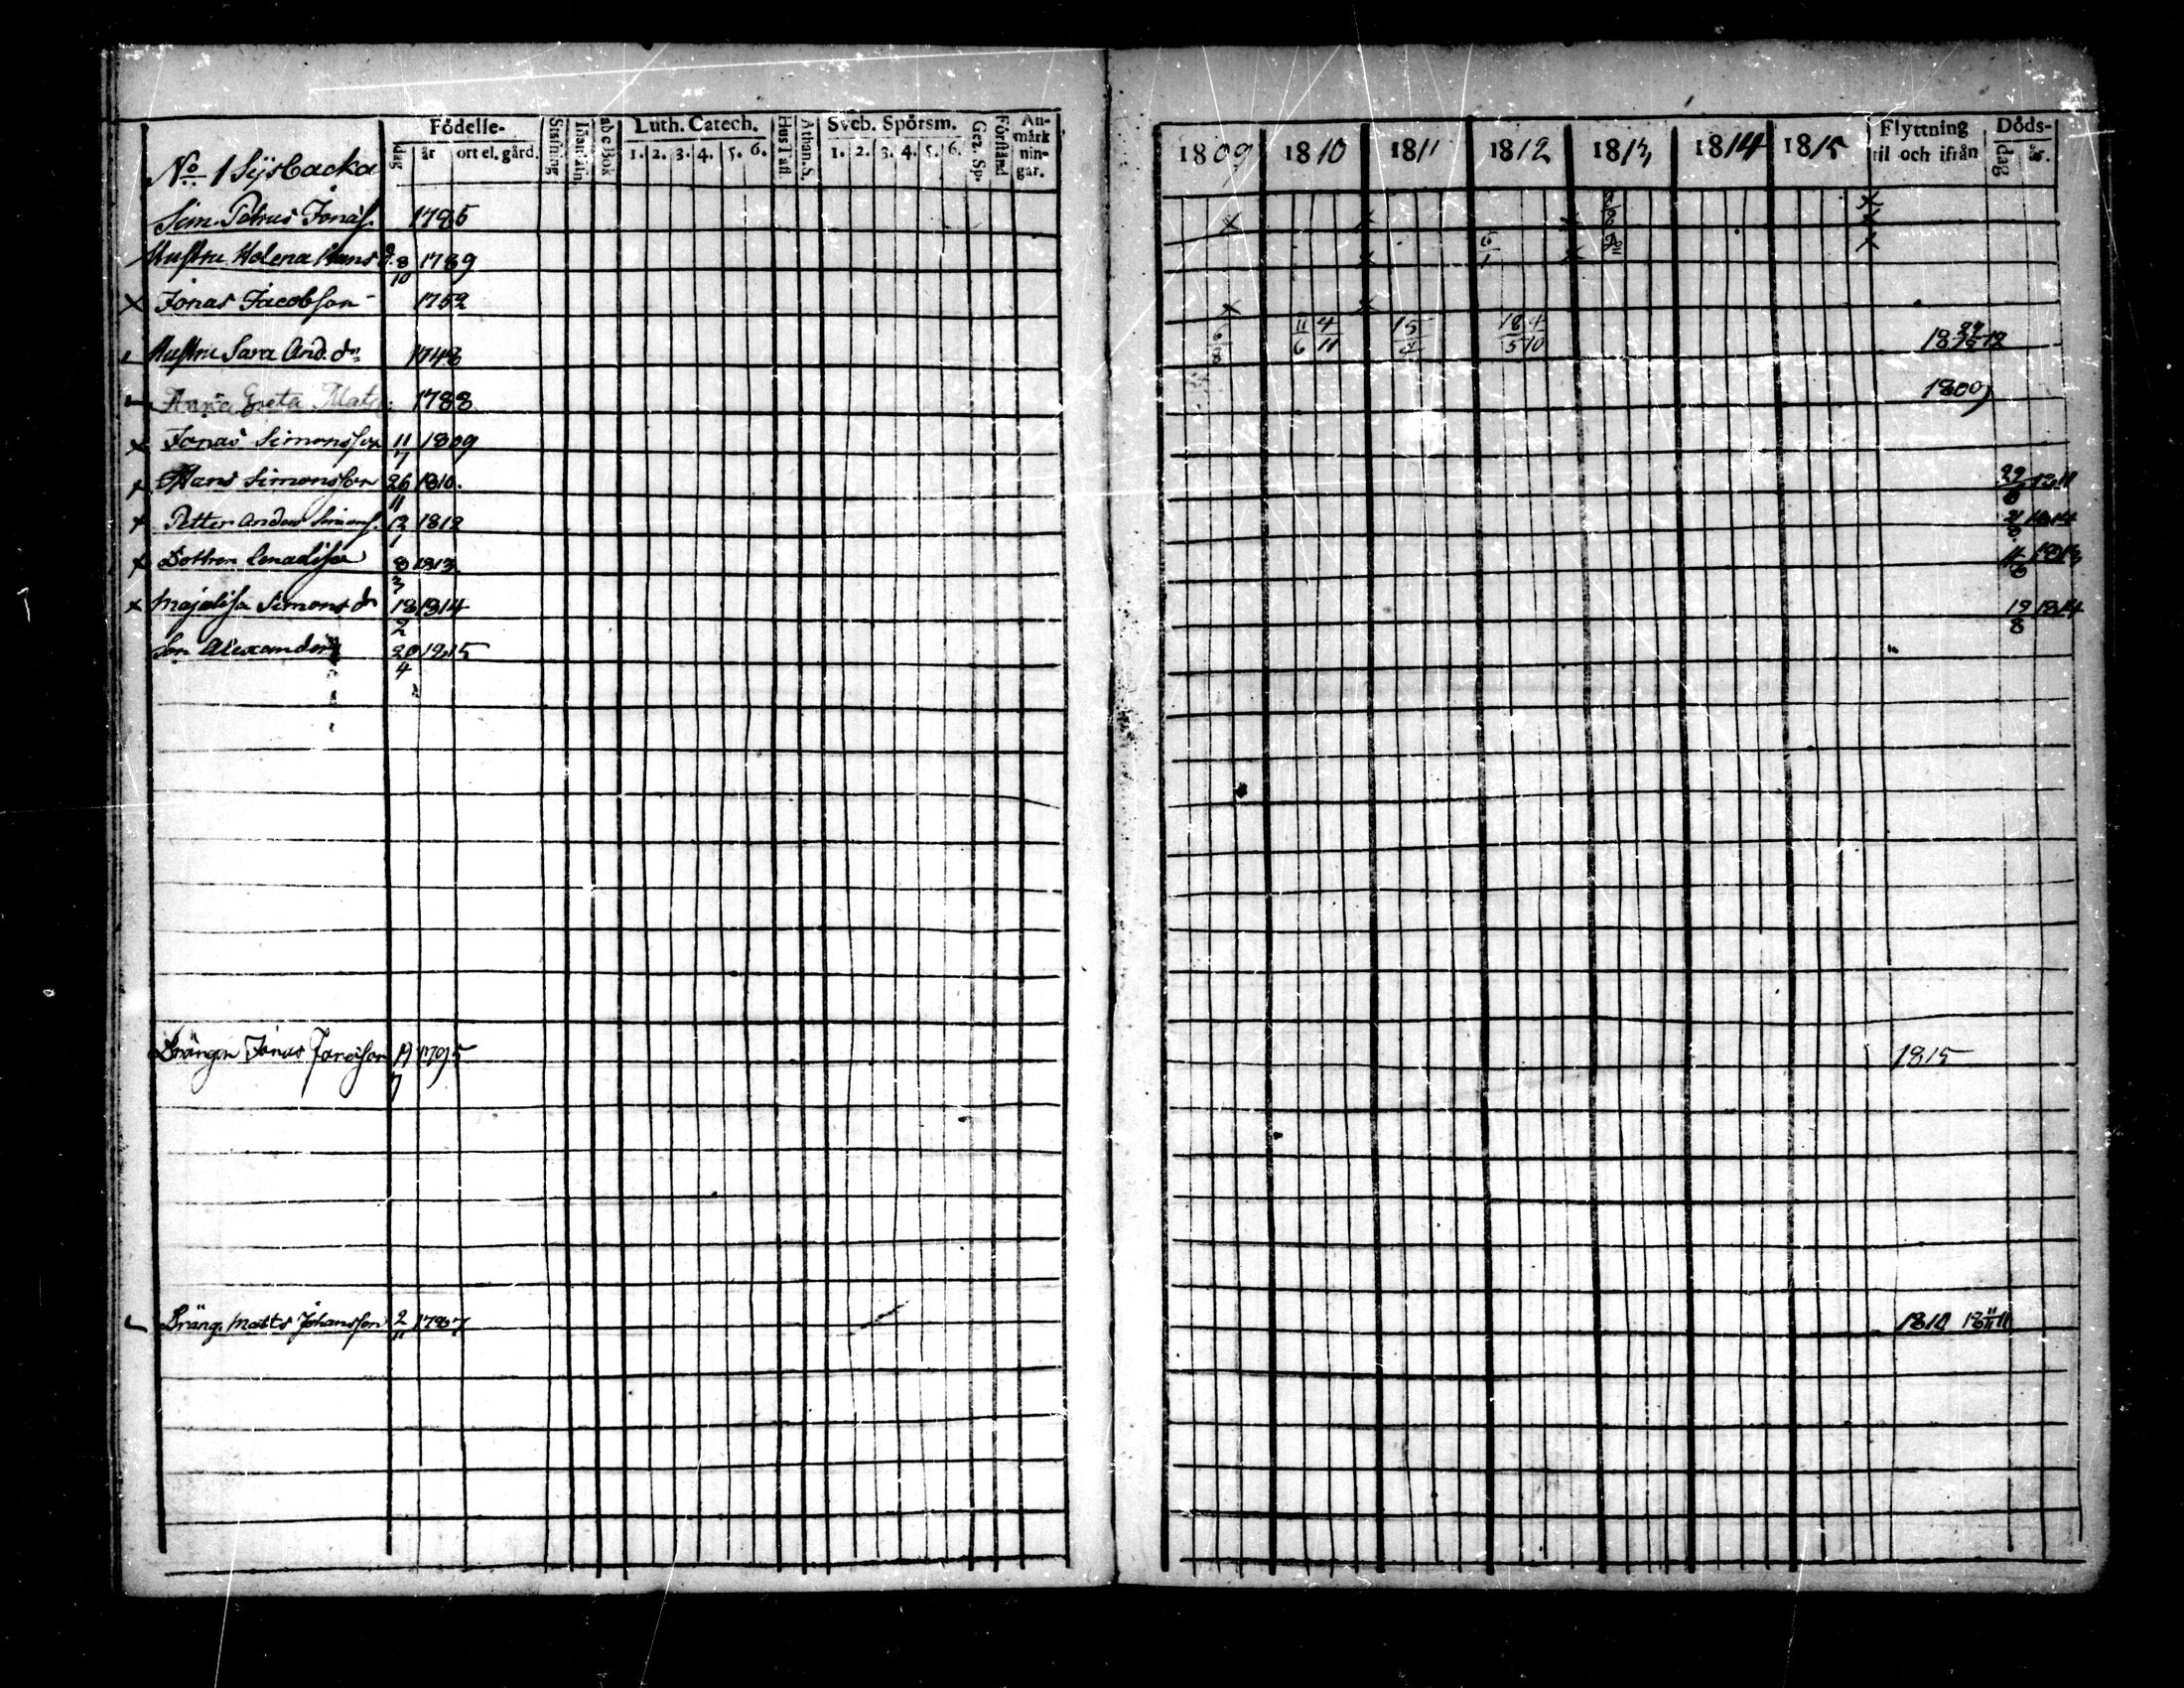 No 1 Sÿsbacka
Födelse-
dag
år
ort el. gård.
Stafning
ab c Bok
Luth. Catech.
1. 2. 3. 4. 5. 6.
Hus Tafl.
Athan. S.
Sveb. Spörsm.
1. 2. 3. 4. 5. 6.
Gez. Sp.
Förstånd
An-
märk
nin-
gar.
1809 1810 1811 1812 1813 1814 1815
Flyttning
til och ifrån
Döds-
dag
år.
Sim. Petrus Jonas. 1785
Hustru Helena Hans d. 8/10 1789
x Jonas Jacobson 1752 x x
Hustru Sara And. dr 1748 11/6 4/11 18/5 4/10
Anna Greta Mats 1788 1809
x Jonas Simonsson 11/7 1809
x Hans Simonsson 26/11 1810. 1811
x Petter Anders Simons. 12/1 1812 1814
x Dottren Lenalisa 8/3 1813 1813
x Majalisa Simons dr 18/2 1814 19/8 1814
Son Alexander 20/4 1815
Drängen Jonas 19/7 1795 1815
Dräng. Matts Johansson 2/11 1787 1810 18 11/11 11